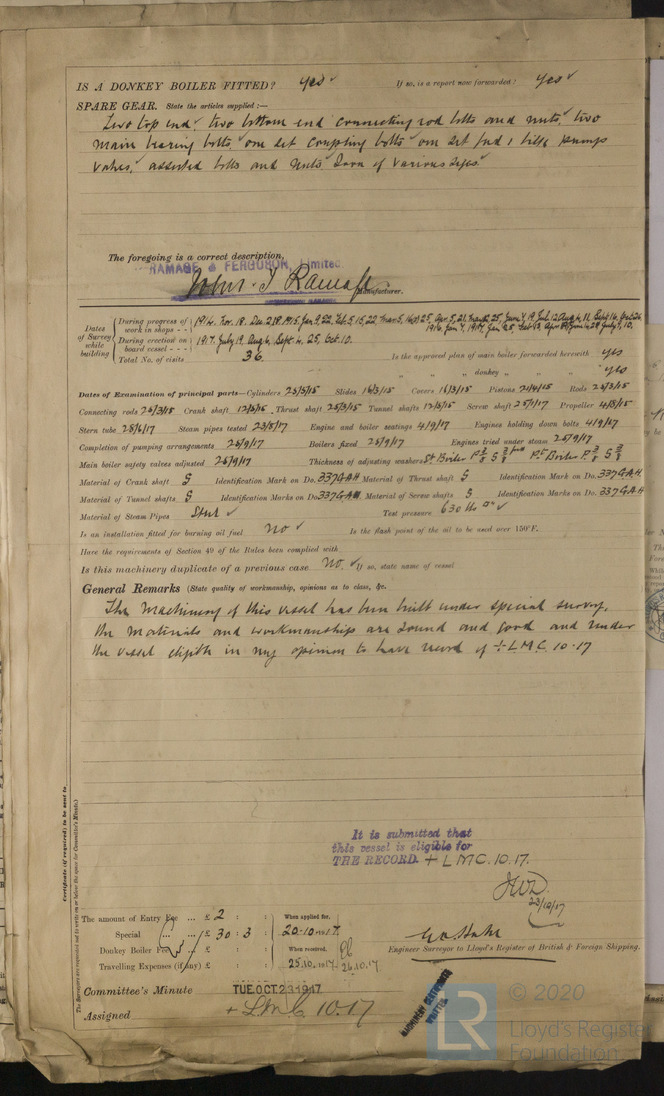 IS A DONKEY BOILER FITTED? Yes ✓ If so, is a report now forwarded? Yes ✓
SPARE GEAR. State the articles supplied:—
Two top end, two bottom end connecting rod bolts and nuts, two
main bearing bolts, one set coupling bolts one set feed & bilge pump
valves, assorted bolts and nuts Iron of various sizes
The foregoing is a correct description,
RAMAGE & FERGUSON, Limited.
John I Ramage Manufacturer.
Dates of Survey while building
During progress of work in shops - - 1914. Nov. 18. Dec 2, 18. 1915 Jan 9, 22
During erection on board vessel - - - 1917. July 19. Aug 6, Sept 4. 25. Oct 10.
Total No. of visits 36. Is the approved plan of main boiler forwarded herewith yes
" " " donkey " " " yes
Dates of Examination of principal parts—Cylinders 25/3/15 Slides 16/3/15 Covers 16/3/15 Pistons 21/4/15 Rods 25/3/15
Connecting rods 25/3/15 Crank shaft 12/3/15 Thrust shaft 25/3/15 Tunnel shafts 12/3/15 Screw shaft 25/1/17 Propeller 4/8/15
Stern tube 28/6/17 Steam pipes tested 23/8/17 Engine and boiler seatings 4/9/17 Engines holding down bolts 4/9/17
Completion of pumping arrangements 25/9/17 Boilers fixed 25/9/17 Engines tried under steam 25/9/17
Main boiler safety valves adjusted 25/9/17 Thickness of adjusting washers St Boiler P 3/8 S 3/8 Pt Boiler P 3/8 S 3/8
Material of Crank shaft S Identification Mark on Do. 337GAH Material of Thrust shaft S Identification Mark on Do. 337GAH
Material of Tunnel shafts S Identification Marks on Do. 337GAH Material of Screw shafts S Identification Marks on Do. 337GAH
Material of Steam Pipes Steel ✓ Test pressure 630 lbs □" ✓
Is an installation fitted for burning oil fuel No ✓ Is the flash point of the oil to be used over 150°F.
Have the requirements of Section 49 of the Rules been complied with
Is this machinery duplicate of a previous case No ✓ If so, state name of vessel
General Remarks (State quality of workmanship, opinions as to class, &c.
The Machinery of this vessel has been built under special survey,
the materials and workmanship are sound and good and under
the vessel eligible in my opinion to have record of + LMC. 10-17
It is submitted that
this vessel is eligible for
THE RECORD. + LMC. 10.17.
23/10/17
The amount of Entry Fee ... £ 2 : : When applied for,
Special ... £ 30 : 3 : 20.10.1917.
Donkey Boiler Fee £ : : When received,
Travelling Expenses (if any) £ : : 25.10.1917 26.10.17
Engineer Surveyor to Lloyd's Register of British & Foreign Shipping.
Committee's Minute TUE. OCT. 23 1917
Assigned + LMC 10.17
MACHINERY CERTIFICATE
WRITTEN
Certificate (if required) to be sent to
The Surveyors are requested not to write on or below the space for Committee's Minute.
© 2020
LR Lloyd's Register
Foundation